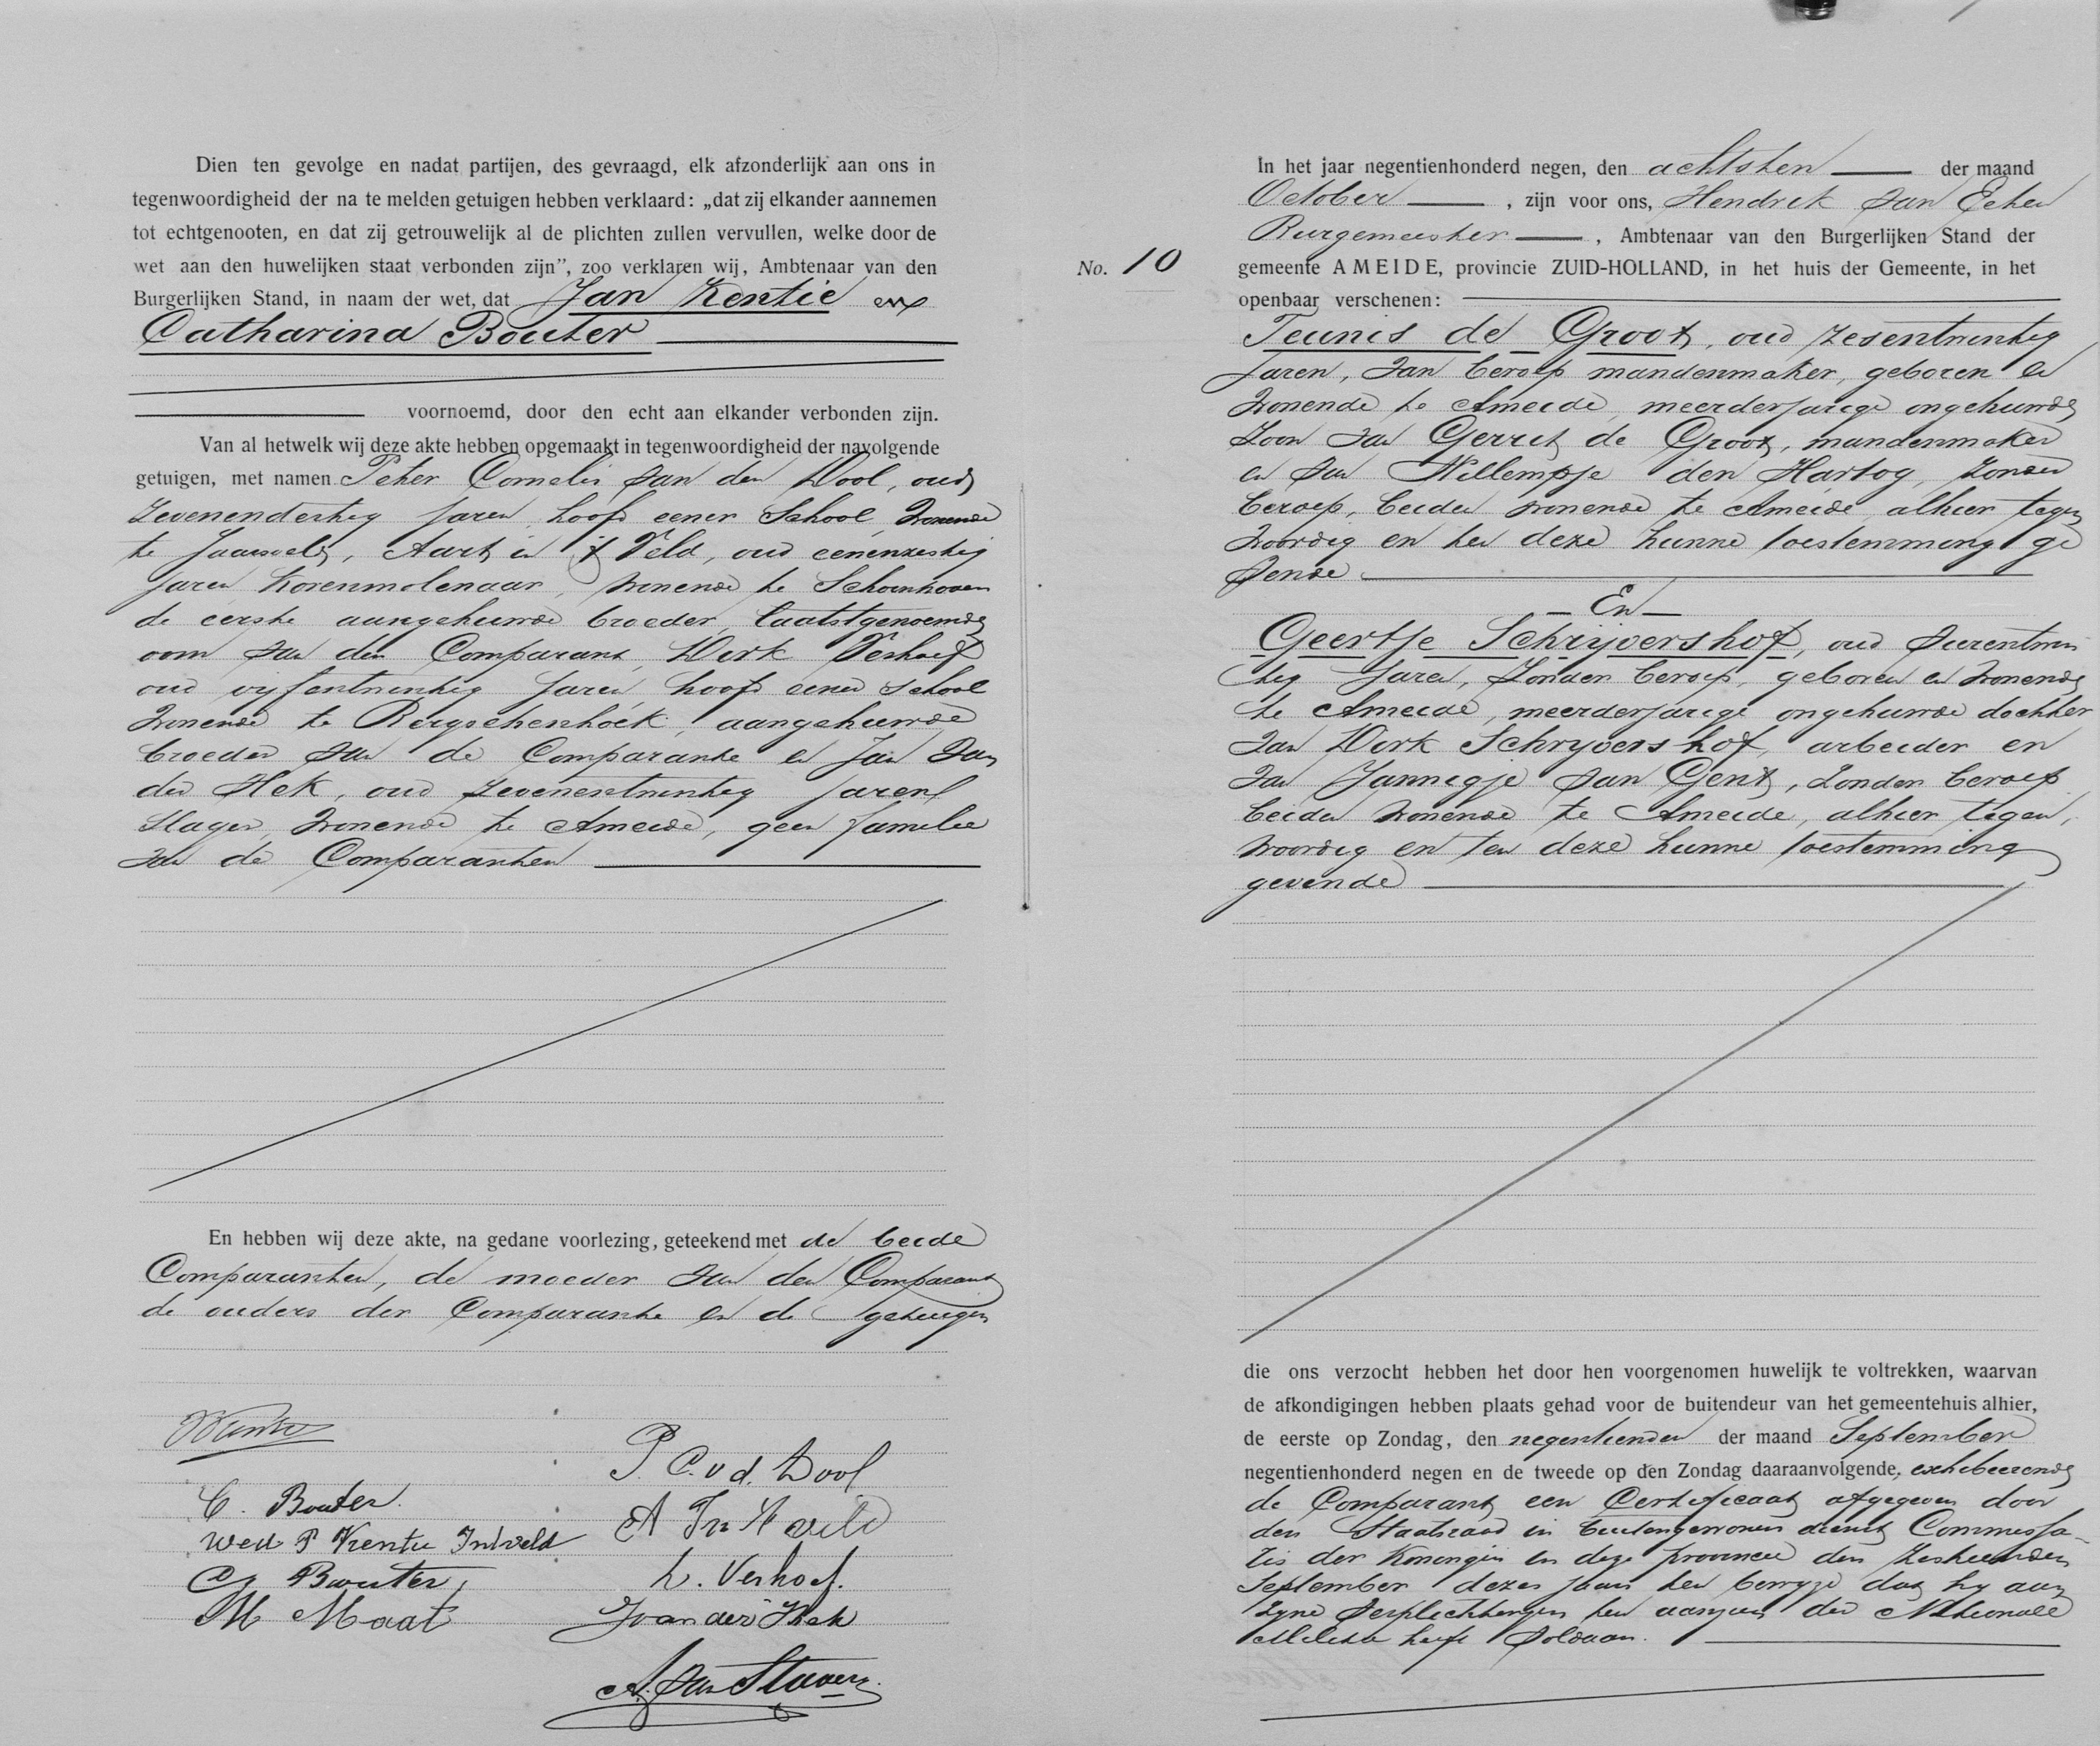 Dien ten gevolge en nadat partijen, des gevraagd, elk afzonderlijk aan ons in
tegenwoordigheid der na te melden getuigen hebben verklaard: „dat zij elkander aannemen
tot echtgenooten, en dat zij getrouwelijk al de plichten zullen vervullen, welke door de
wet aan den huwelijken staat verbonden zijn”, zoo verklaren wij, Ambtenaar van den
Burgerlijken Stand, in naam der wet, dat Jan Kentie en
Catharina Bouter
voornoemd, door den echt aan elkander verbonden zijn.
Van al hetwelk wij deze akte hebben opgemaakt in tegenwoordigheid der navolgende
getuigen, met namen Peter Cornelis van den Dool, oud
zevenendertig jaren, hoofd eener School, wonende
te Jaarsveld, Aart in 't Veld, oud eenenzestig
jaren korenmolenaar, wonende te Schoonhoven
de eerste aangehuwde broeder, laatstgenoemde
oom van den Comparant, Dirk Verhoef
oud vijfentwintig jaren hoofd eener school
wonende te Bergschenhoek, aangehuwde
broeder van de Comparante en Jan van
der Hek, oud zevenentwintig jaren
slager, wonende te Ameide, geen familie
van de Comparanten
En hebben wij deze akte, na gedane voorlezing, geteekend met de beide
Comparanten, de moeder van den Comparant
de ouders der Comparante en de getuigen
JKentie
C. Bouter.
Wed P Kentie Intveld
Bouter
M Maat
P. C. v d. Dool
A In 't veld
D. Verhoef.
J van der Hek
No. 10
In het jaar negentienhonderd negen, den achtsten der maand
October, zijn voor ons, Hendrik van Eeken
Burgemeester, Ambtenaar van den Burgerlijken Stand der
gemeente AMEIDE, provincie ZUID-HOLLAND, in het huis der Gemeente, in het
openbaar verschenen:
Teunis de Groot, oud zesentwintig
jaren, van beroep mandenmaker, geboren en
wonende te Ameide, meerderjarige ongehuwde
zoon van Gerrit de Groot, mandenmaker
en van Willempje den Hartog, zonder
beroep, beiden wonende te Ameide, alhier tegen
woordig en ten deze hunne toestemming ge
vende
En
Geertje Schrijvershof, oud vierentwin
tig jaren, zonder beroep, geboren en wonende
te Ameide, meerderjarige ongehuwde dochter
van Dirk Schrijvershof, arbeider en
van Jannigje van Gent, zonder beroep
beiden wonende te Ameide, alhier tegen,
woordig en ten deze hunne toestemming
gevende
die ons verzocht hebben het door hen voorgenomen huwelijk te voltrekken, waarvan
de afkondigingen hebben plaats gehad voor de buitendeur van het gemeentehuis alhier,
de eerste op Zondag, den negentienden der maand September
negentienhonderd negen en de tweede op den Zondag daaraanvolgende, exhibeerende
de Comparant een Certificaat afgegeven door
den Staatsraad in buitengewonen dienst Commissa-
ris der Koningin in deze provincie den zestienden
September dezes jaars ten bewyze dat hy aan
zyne verplichtingen ten aanzien der Nationale
Militie heeft voldaan.